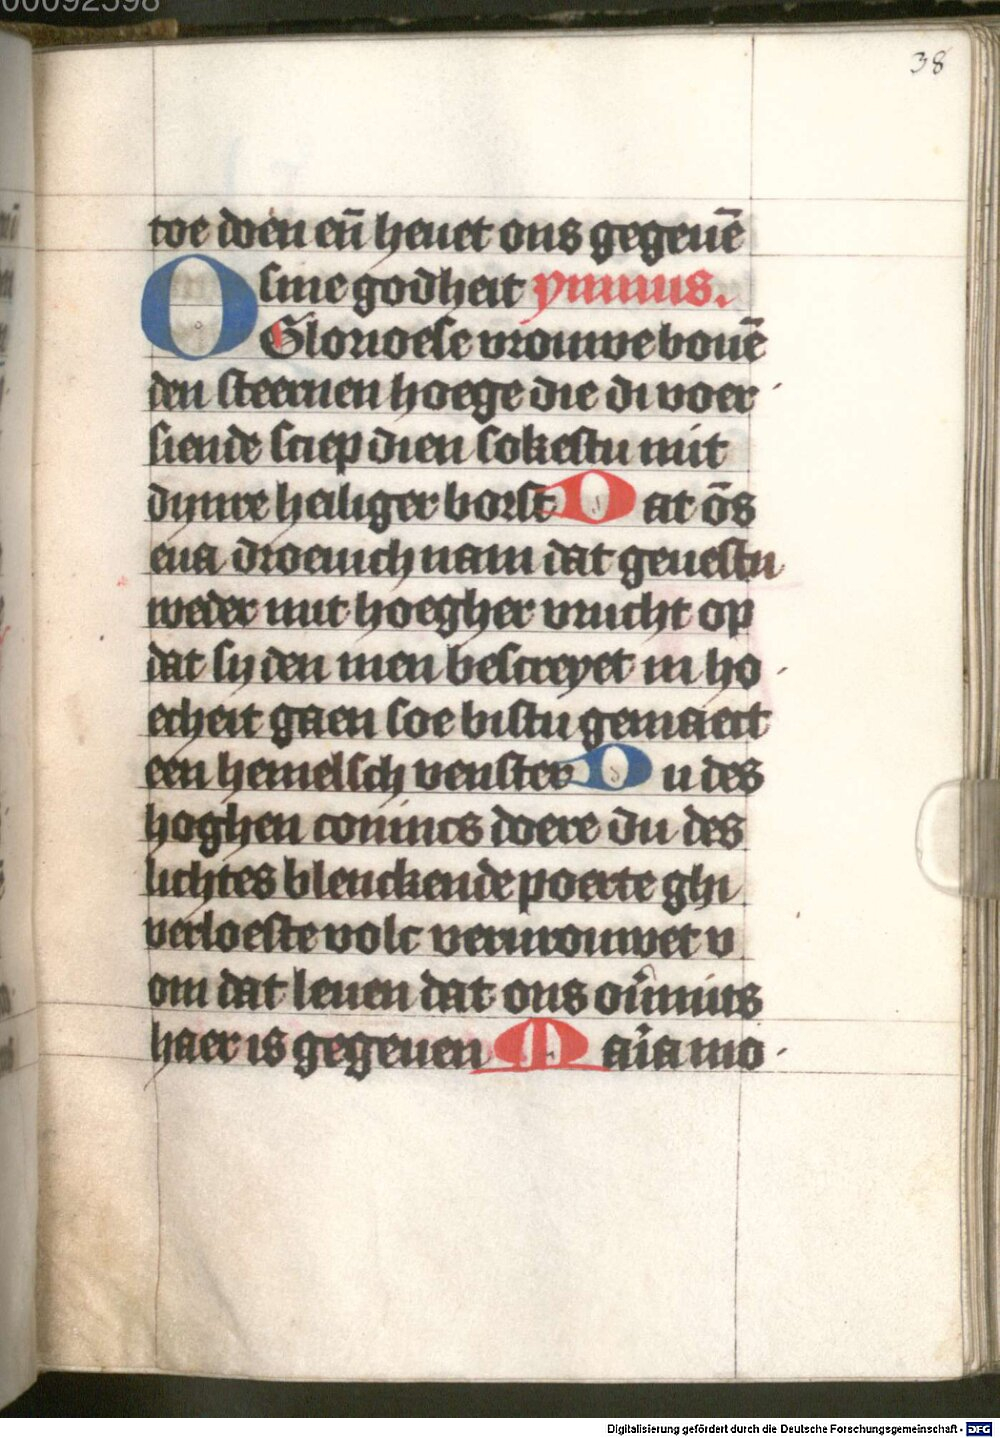 00092598
38
toe doen eñ heuet ons gegeuē
sine godheit ymnus.
O Glorioese vrouwe bouē
den steernen hoege die di voer
siende sciep dien sokestu mit
dijnre heiliger borst Dat ōs
eua droeuich nam dat geuestu
weder mit hoegher vrucht op
dat sij den men bescreyet in ho
echeit gaen soe bistu gemaect
een hemelsch venster Du des
hoghen conincs doere du des
lichtes blenckende poerte ghi
verloeste volc vervrouwet v
om dat leuen dat ons ou̕mits
haer is gegeuen Mar̕ia mo
Digitalisierung gefördert durch die Deutsche Forschungsgemeinschaft - DFG